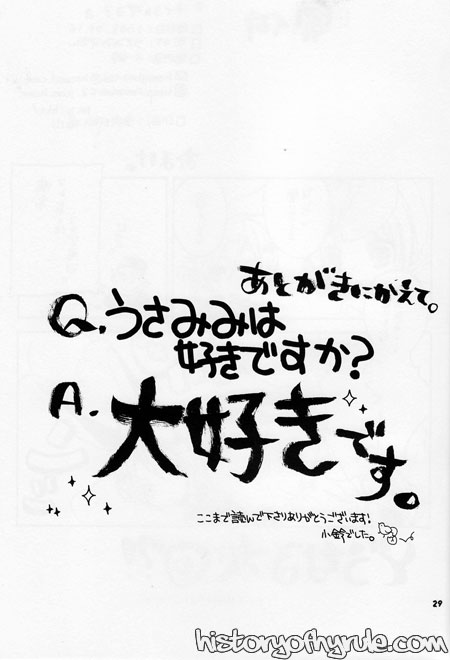 あとがきにかえて。
Q.うさみみは
好きですか?
A.大好きです。
ここまで読んで下さりありがとうございます!
小鈴でした。
29
historyofhyrule.com